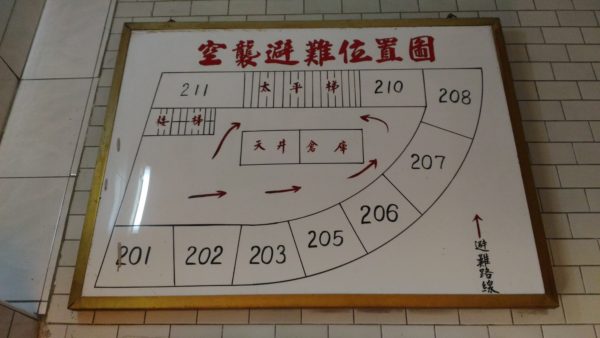 空襲避難位置圖
211
太平梯
210
208
樓梯
天井
倉庫
207
206
205
203
202
201
避難路線